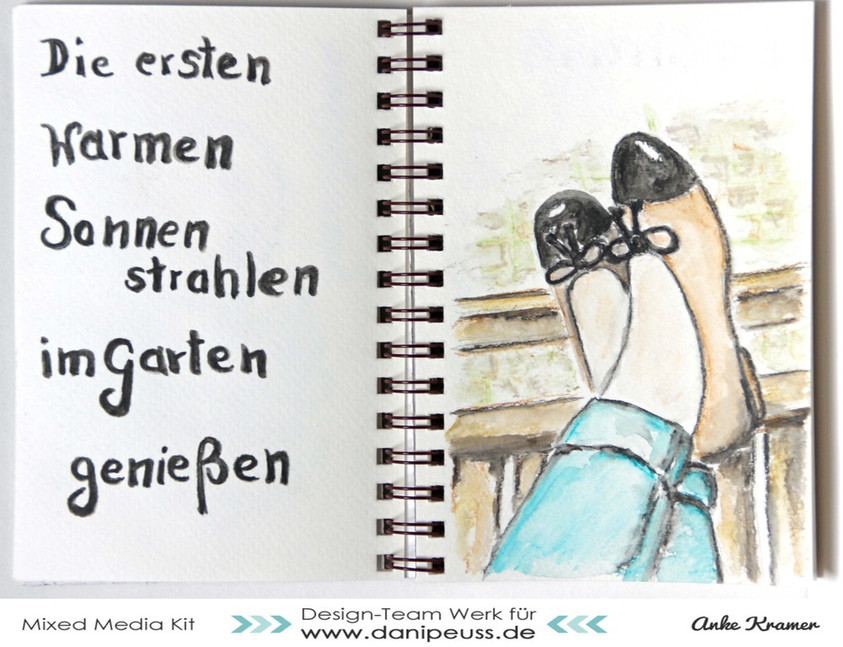 Die ersten
Warmen
Sonnen
strahlen
im Garten
genießen
Mixed Media Kit
Design-Team Werk für
www.danipeuss.de
Anke Kramer